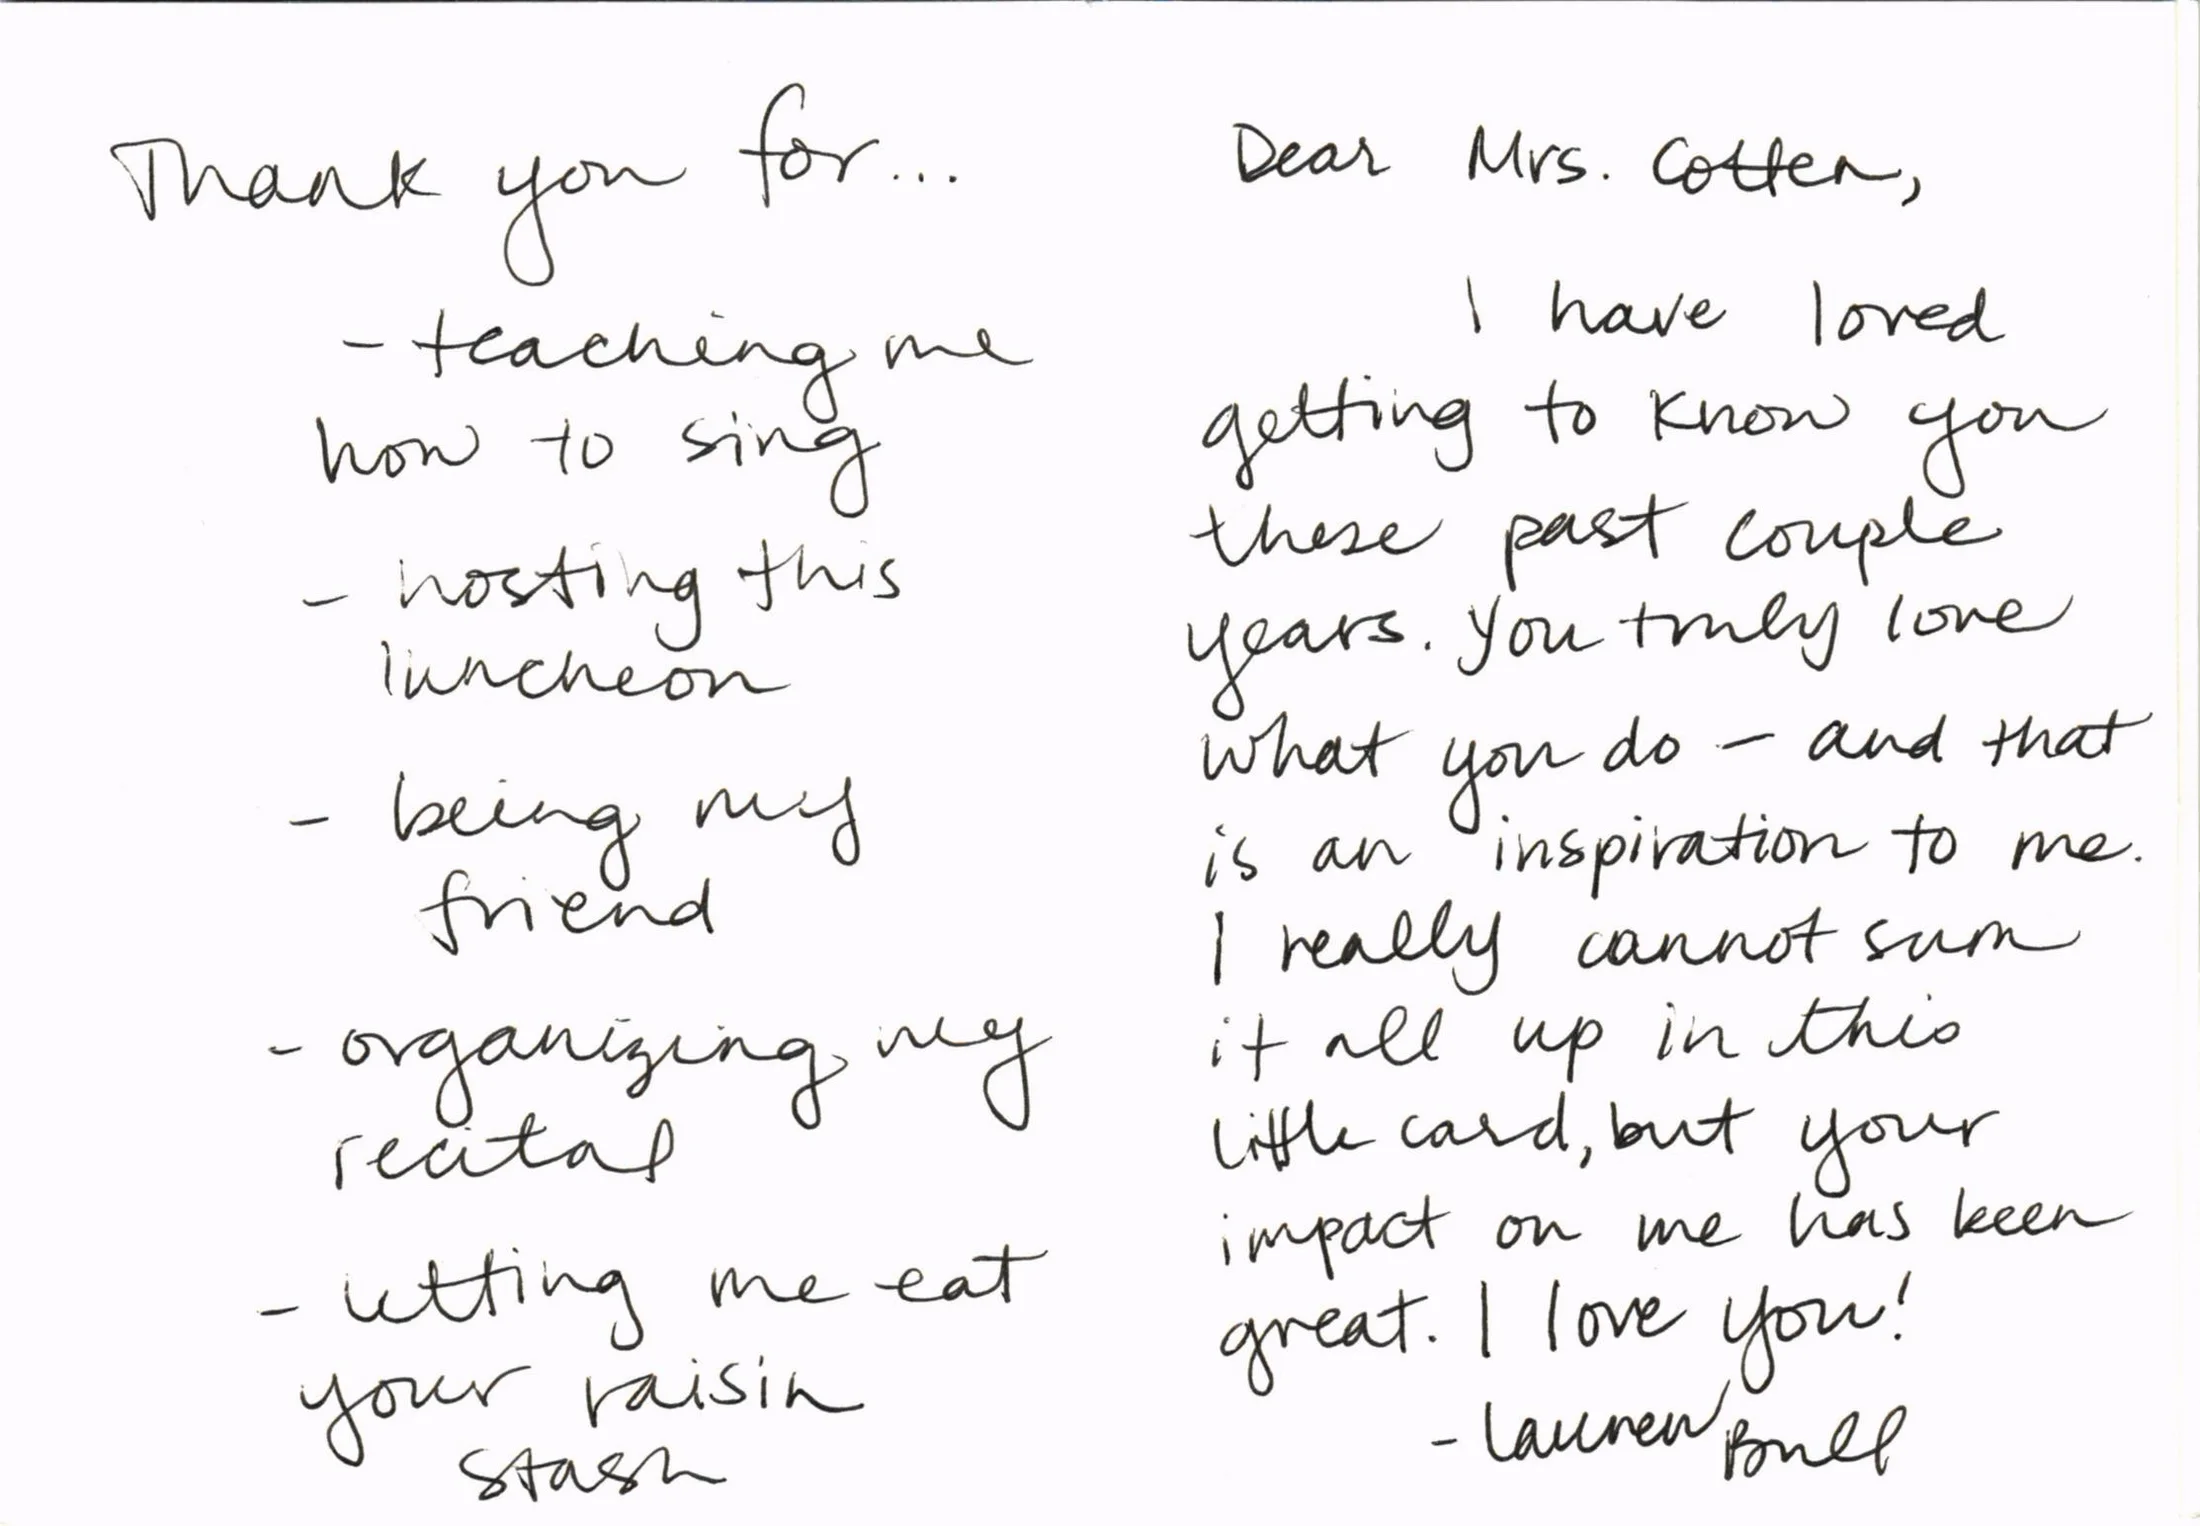 Thank you for...
- teaching me
how to sing
- hosting this
luncheon
- being my
friend
- organizing my
recital
- letting me eat
your raisin
stash
Dear Mrs. Cotten,
I have loved
getting to know you
these past couple
years. You truly love
what you do – and that
is an inspiration to me.
I really cannot sum
it all up in this
little card, but your
impact on me has been
great. I love you!
- Lauren Bull